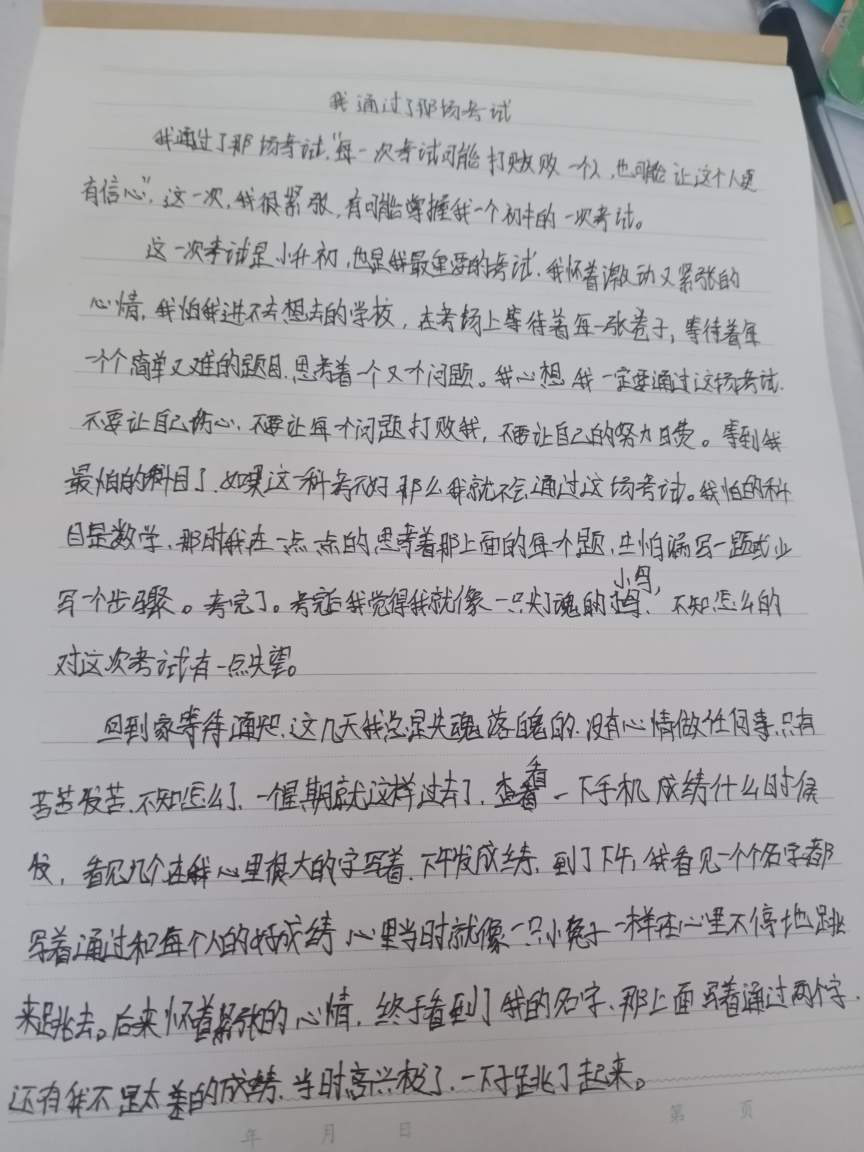 我通过了那场考试
我通过了那场考试,"每一次考试可能打败败一个人,也可能让这个人更
有信心",这一次,我很紧张,有可能掌握我一个初中的一次考试。
这一次考试是小升初,也是我最重要的考试,我怀着激动又紧张的
心情,我怕我进不去想去的学校,在考场上等待着每一张卷子,等待着每
一个个简单又难的题目,思考着一个又个问题。我心想我一定要通过这场考试.
不要让自己伤心,不要让每个问题打败我,不要让自己的努力白费。等到我
最怕的科目了,如果这一科考不好那么我就不会通过这场考试。我怕的科
目是数学,那时我在一点点的思考着那上面的每个题,生怕漏写一题或少
写一个步骤。考完了。考完后我觉得我就像一只失魂的小鸟,不知怎么的
对这次考试有一点失望。
回到家等待通知,这几天我总是失魂落魄的,没有心情做任何事,只有
苦苦发苦,不知怎么了,一个星期就这样过去了,查看一下手机成绩什么时候
发,看见几个在我心里很大的字写着,下午发成绩,到了下午,我看见一个个名字都
写着通过和每个人的好成绩心里当时就像一只小兔子一样在心里不停地跳
来跳去。后来怀着紧张的心情,终于看到了我的名字,那上面写着通过两个字,
还有我不是太差的成绩,当时高兴极了,一下子跳了起来。
年 月 日
第 页